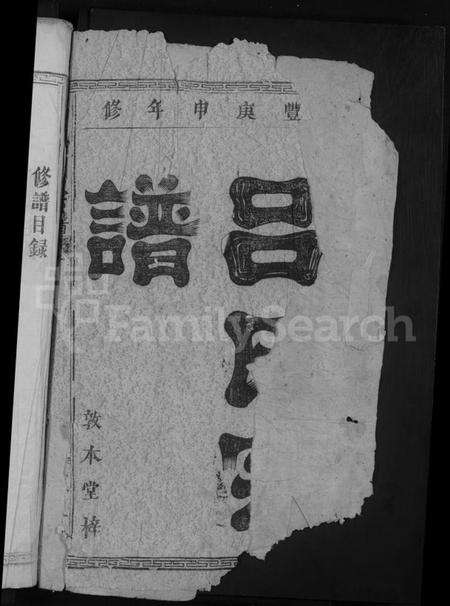 豐庚申年修
呂氏
譜
敦本堂梓
修譜目錄
FamilySearch